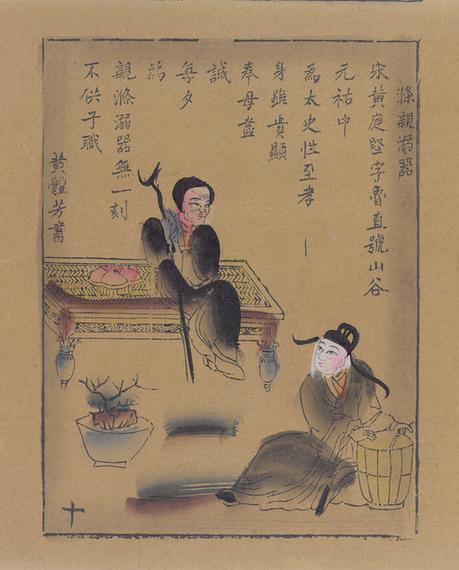 滌親溺器
宋黃庭堅字魯直號山谷
元祐中
為太史性至孝
身雖貴顯
奉母盡
誠
每夕
為
親滌溺器無一刻
不供子職
黃體芳書
十